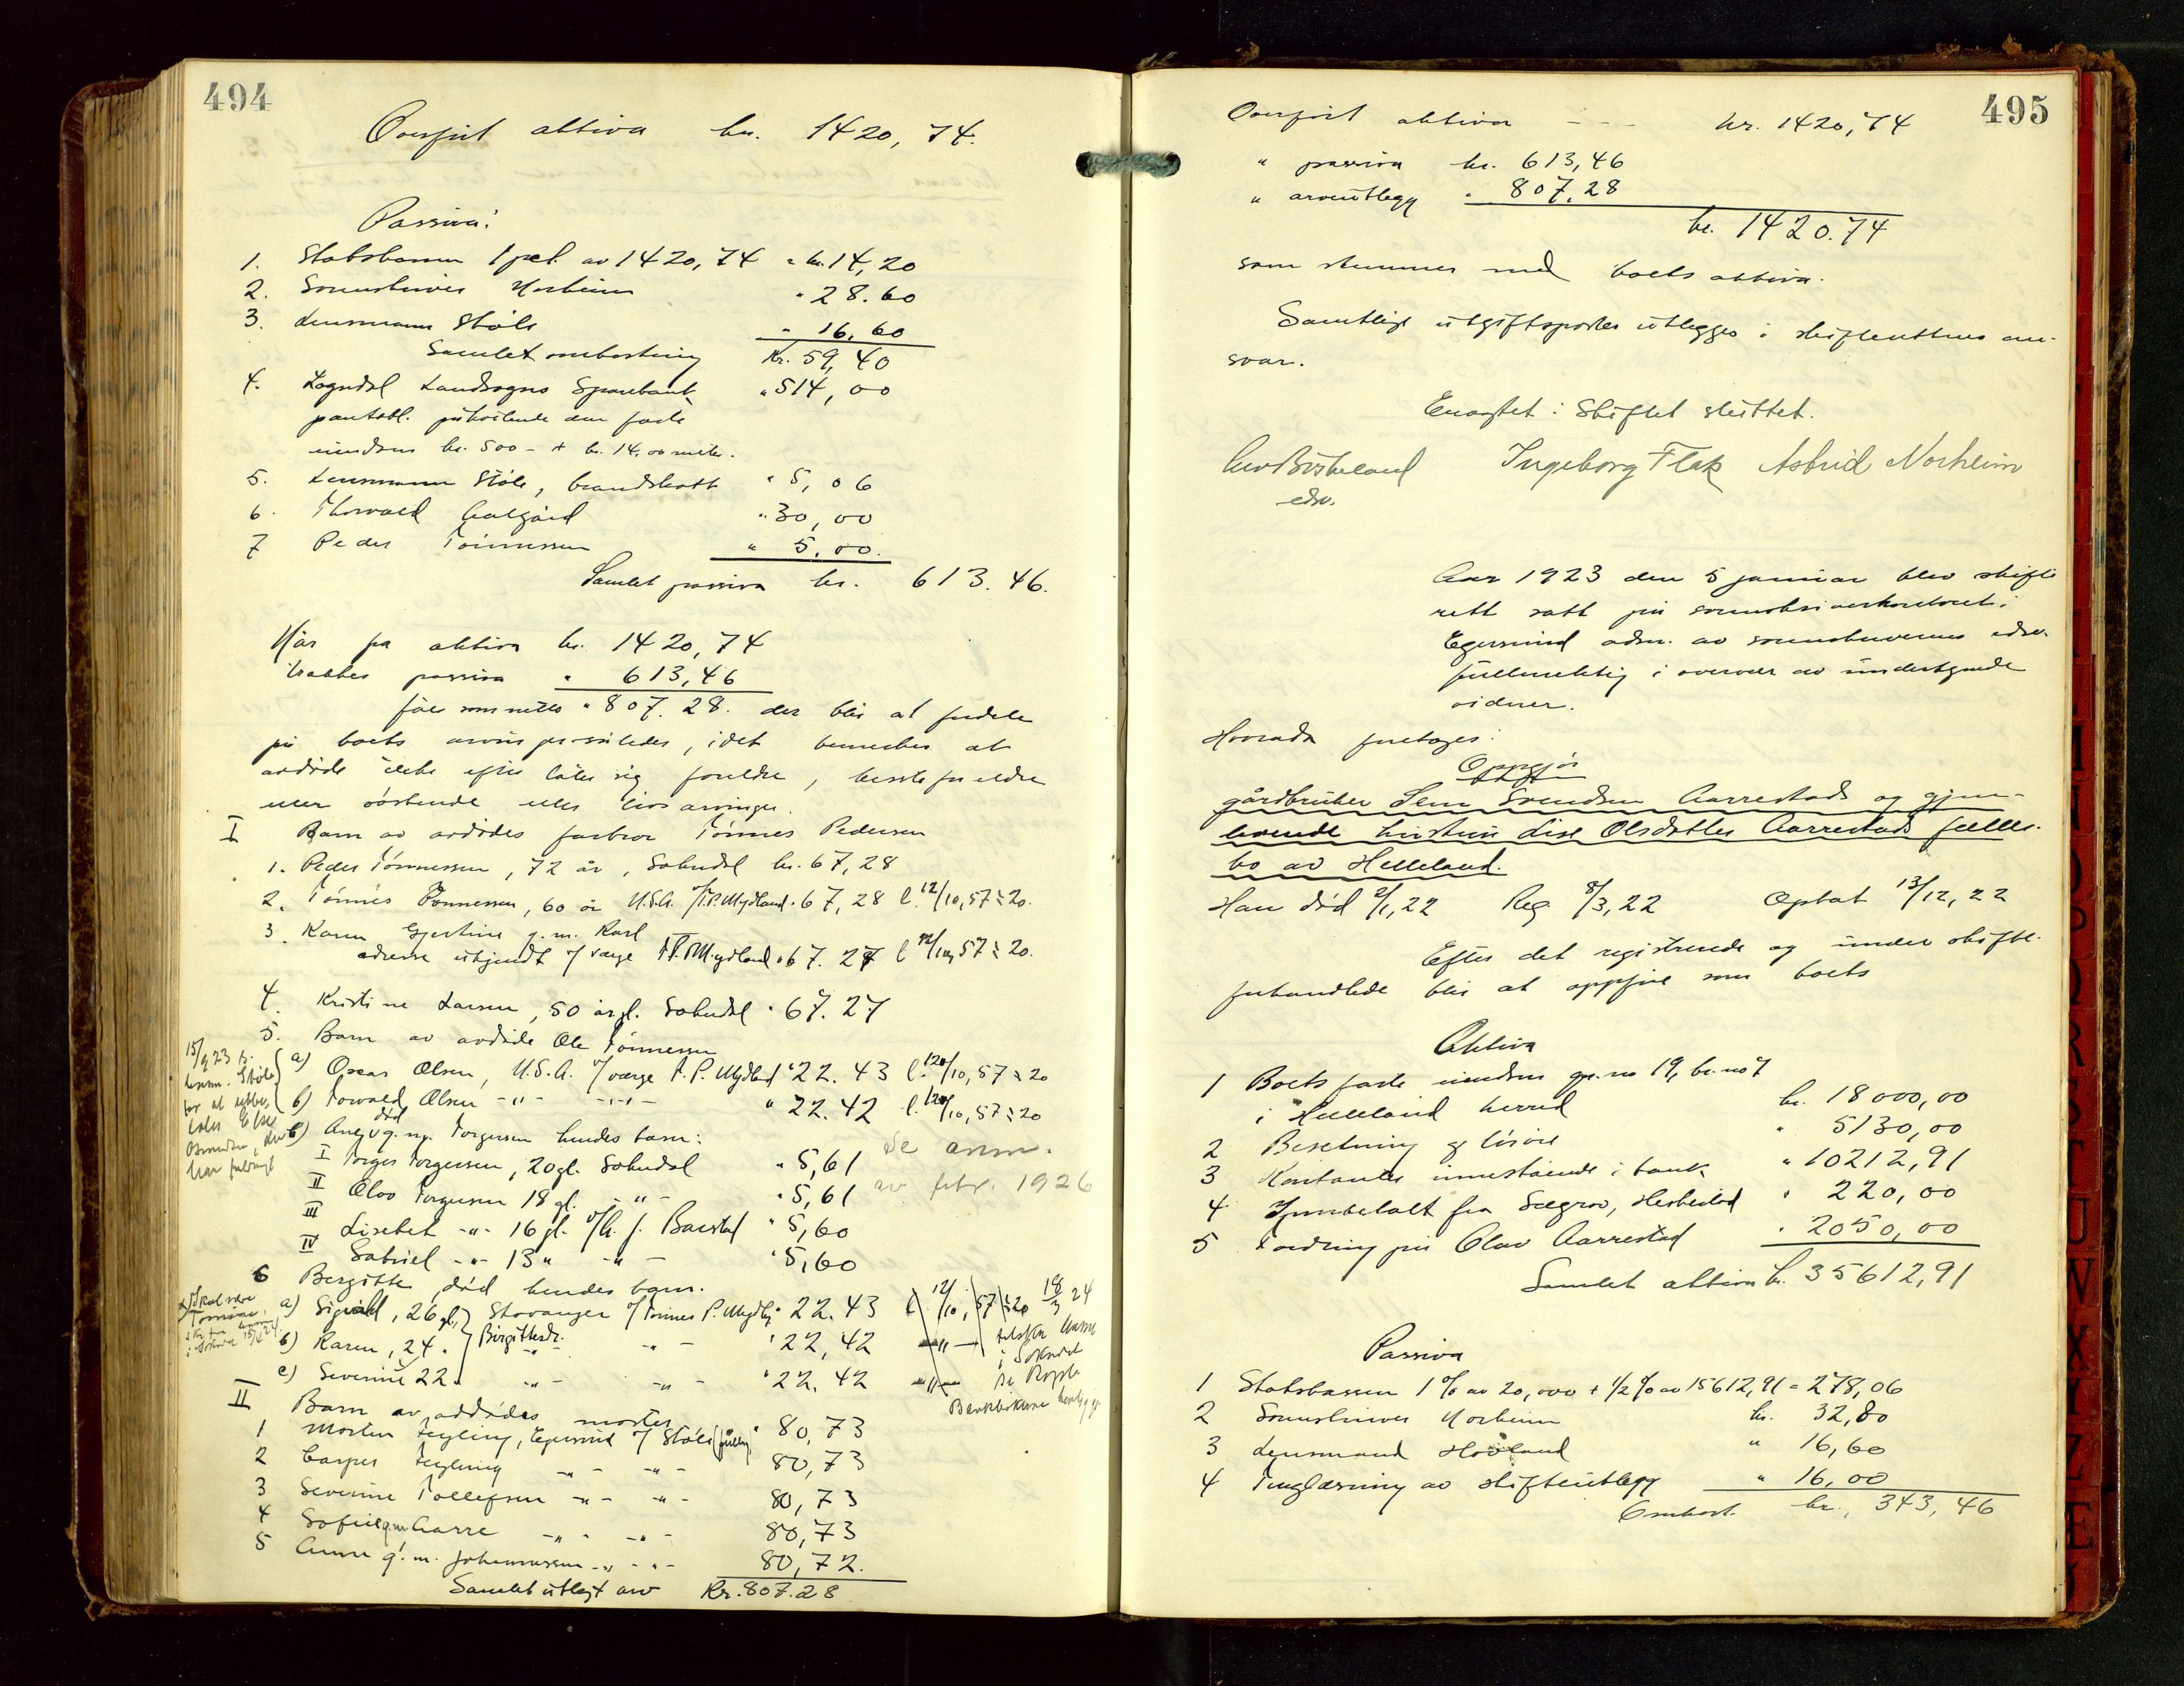 494
Overført aktiva kr. 1420,74.
Passiva:
1. Statskassen 1 pct. av 1420,74 " kr. 14,20
2. Sorenskriver Norheim " 28.60
3. Lensmann Støle " 16,60
Samlet omkostning Kr. 59,40
4. Sogndal Landsogns Sparebank " 514,00
pantobl. påhvilende den faste
eiendom kr. 500 - + kr. 14,00 renter.
5. Lensmann Støle, brandskatt " 5,06
6. Thorvald Aalgård " 30,00
7 Peder Tönnessen " 5,00.
Samlet passiva kr. 613.46.
Når fra aktiva kr. 1420,74
trækkes passiva " 613,46
fåes som netto " 807.28. der blir at fordele
på boets arvinger således, idet bemerkes at
avdøde ikke efterlater sig foreldre, besteforeldre
eller søskende eller livsarvinger.
I Barn av avdødes farbror Tönnes Pedersen
1. Peder Tönnessen, 72 år, Sokndal kr. 67,28
2. Tönnes Tönnessen, 60 år U.S.A. v/T.P. Mydland " 67,28 l. 12/10, 57 § 20.
3. Karen Gjertine g.m. Karl
adresse ukjendt v/ værge T.P. Mydland " 67.27 l 12/10, 57 § 20.
4. Kristine Larsen, 50 år gl. Sokndal " 67.27
5. Barn av avdøde Ole Tönnessen
a) Oscar Olsen, U.S.A. v/værge T.P. Mydland " 22.43 l. 12/10, 57 § 20
b) Torvald Olsen - " - - " - " 22.42 l. 12/10, 57 § 20
15/9 23 
lensm. Støle
for at
har fuldmagt
c) død g.m. Torgersen hendes barn:
I Torger Torgersen, 20 gl. Sokndal " 5,61 se anm.
II Olav Torgersen 18 gl. - " - " 5,61 av febr. 1926
III Lisebet - " - 16 gl. " 5,60
IV Gabriel - " - 13 " - " - " 5,60
6 Bergitte, død, hendes barn.
a) Sigvald, 26 gl. Stavanger v/Tönnes P. Mydland " 22.43 l 12/10, 57 § 20 18/3 24
b) Karen, 24. Birgittestr. - " - " 22,42 - " -
i Sokndal
c) Severine 22. - " - - " - " 22.42 - " -
Bankbøkerne
II Barn av avdødes moster
1 Morten Tegling, Egersund v/ Støle " 80,73
2 Casper Tegling - " - - " - 80,73
3 Severine Tollefsen - " - - " - 80,73
4 Sofie g.m. Aarre - " - - " - 80,73
5 Anne g.m. Johannessen - " - - " - 80,72.
Samlet utlagt arv Kr. 807.28
495
Overført aktiva - - - kr. 1420,74
" passiva kr. 613,46
" arveutlegg " 807.28
kr. 1420.74
som stemmer med boets aktiva.
Samtlige utgiftsposter utlegges i skifterettens an-
svar.
Eragtet: Skiftet sluttet.
Ingeborg Flak Astrid Norheim
edsv.
Aar 1923 den 5 januar blev skifte
rett satt på sorenskriverkontoret i
Egersund adm. av sorenskriverens edsv.
fullmektig i overvær av undertegnede
vidner.
Hvorda foretages:
Oppgjör
gårdbruker Sem Svendsen Aarrestads og gjen-
levende hustru Lise Olsdatter Aarrestads felles-
bo av Helleland.
Han død 2/1, 22 Reg. 8/3, 22 Optat 13/12, 22
Efter det registrerede og under skifte-
forhandlede blir at oppføre som boets
Aktiva
1 Boets faste eiendom gr. no 19, br. no 7
i Helleland herred kr. 18000,00
2 Besetning og lösöre " 5130,00
3 Kontanter innestående i bank " 10212,91
4 Igjenbetalt fra Sægrov, Heskestad " 220,00
5 Fordring på Olav Aarrestad " 2050,00
Samlet aktiva kr. 35612,91
Passiva
1 Statskassen 1 % av 20,000 + 1/2 % av 15612,91 = 278,06
2 Sorenskriver Norheim kr. 32,80
3 Lensmand Hovland " 16,60
4 Tinglæsning av skifteutlegg " 16,00
Omkost. kr. 343,46